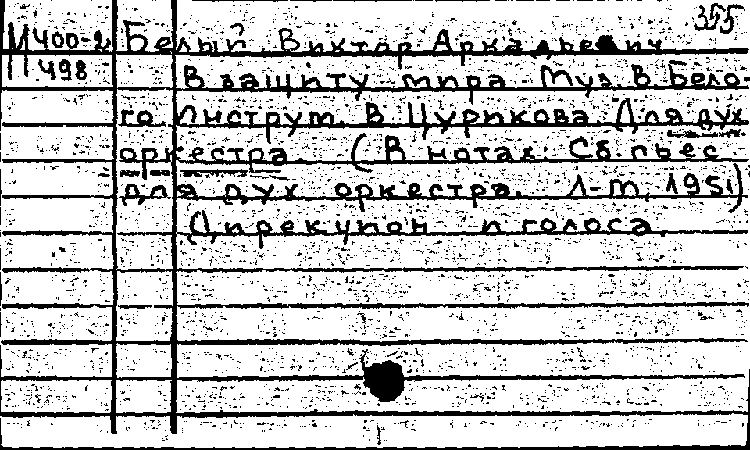 355
М400-2 Белый Виктор Аркадьевич
П498 В защиту мира. Муз. В. Бело-
го. Инструм. В. Цурикова. Для дух.
оркестра. (В нотах: Сб. пьес
для дух. оркестра. Л-М, 1951)
Дирекцион и голоса.